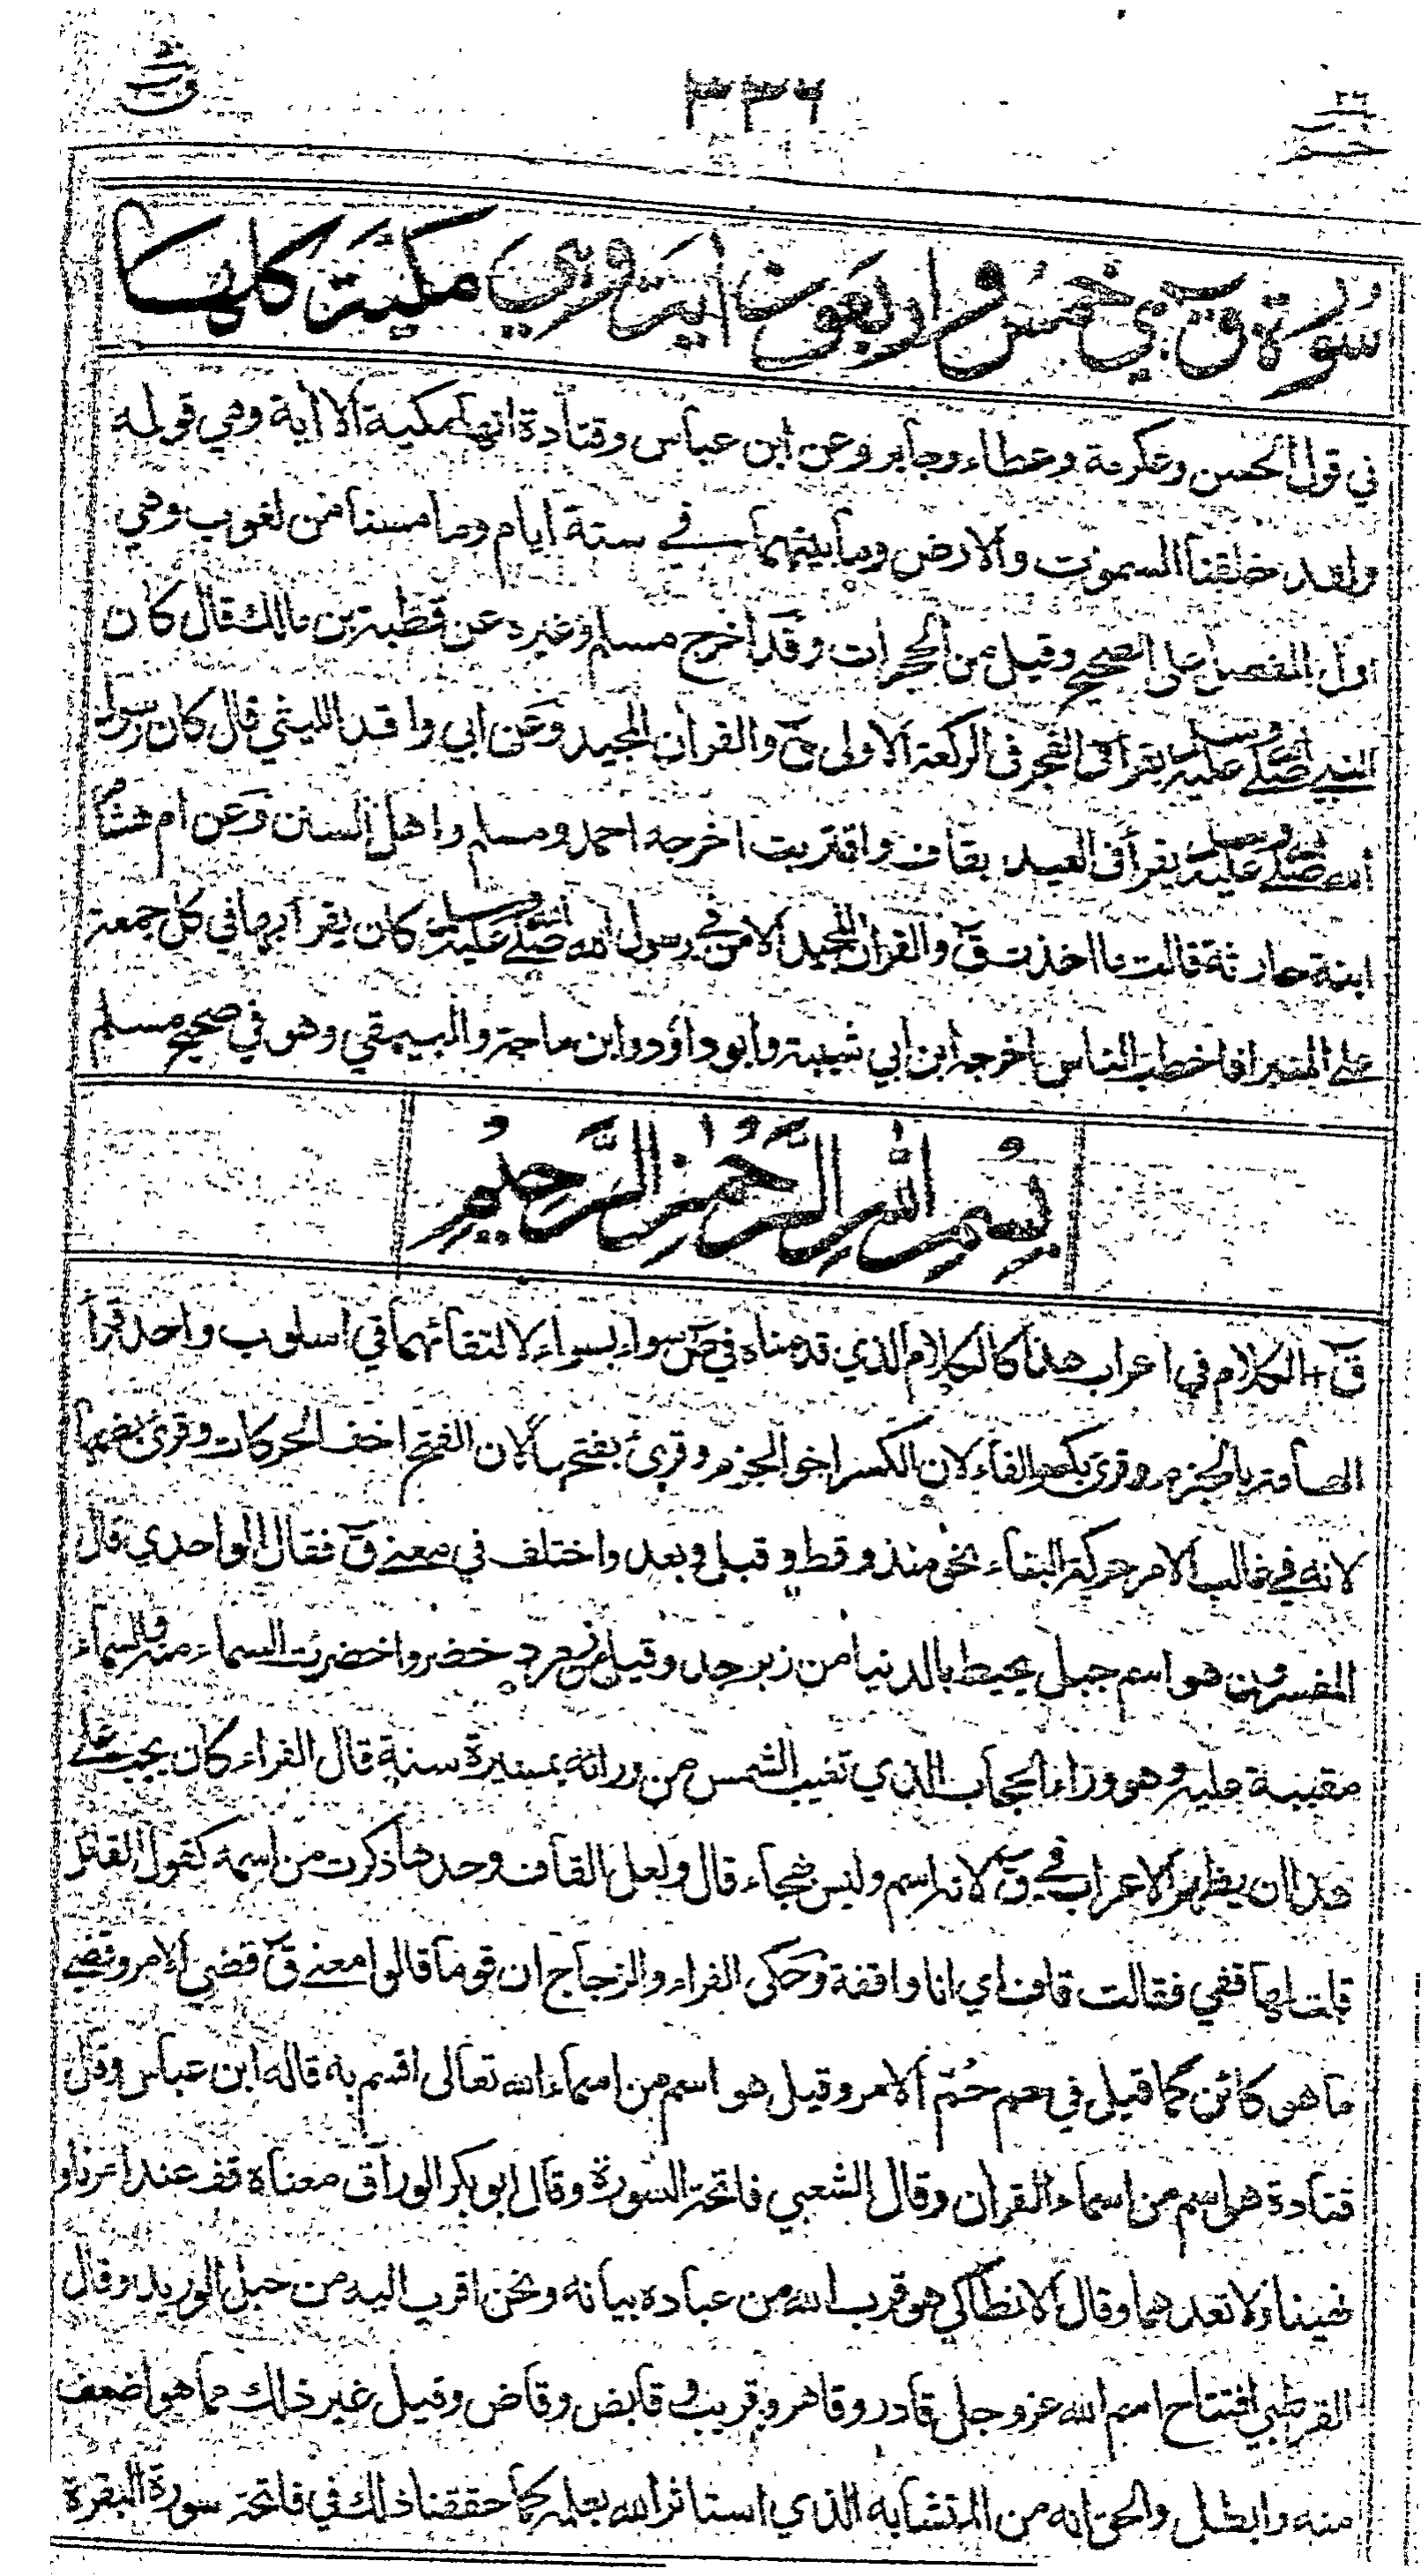 ٢٦ حٰم
٣٣٦
قٓ ٥٠
سورة قٓ هي خمس واربعون اية وهي مكية كلها
في قول الحسن وعكرمة وعطاء وجابر وعن ابن عباس وقتادة انها مكية الا اية وهي قوله
ولقد خلقنا السموت والارض وما بينهما في ستة ايام وما مسنا من لغوب وهي
اول المفصل على الصحيح وقيل من الحجرات وقد اخرج مسلم وغيره عن قطبة بن مالك قال كان
النبي صلى الله عليه وسلم يقرأ في الفجر في الركعة الاولى قٓ والقرأن المجيد وعن ابي واقد الليثي قال كان رسول
الله صلى الله عليه وسلم يقرأ في العيد بقاف واقتربت اخرجه احمد ومسلم واهل السنن وعن ام هشام
ابنة حارثة قالت ما اخذت قٓ والقرأن المجيد الا من في رسول الله صلى الله عليه وسلم كان يقرأ بها في كل جمعة
على المنبر اذا خطب الناس اخرجه ابن ابي شيبة وابو داؤد وابن ماجة والبيهقي وهو في صحيح مسلم
بسم الله الرحمن الرحيم
قٓ الكلام في اعراب هذا كالكلام الذي قدمناه في صٓ سواء بسواء لالتقائهما في اسلوب واحد قرأ
العامة بالجزم وقرئ بكسر الفاء لان الكسر اخو الجزم وقرئ بفتحها لان الفتح اخف الحركات وقرئ بضمها
لانه في غالب الامر حركة البناء نحو منذ وقط وقبل وبعد واختلف في معنى قٓ فقال الواحدي قال
المفسرون هو اسم جبل يحيط بالدنيا من زبرجد وقيل من زمرد خضر واخضرت السماء منه والسماء
مقببة عليه وهو وراء الحجاب الذي تغيب الشمس من ورائه بمسيرة سنة قال الفراء كان يجب على
هذا ان يظهر الاعراب في قٓ لانه اسم وليس بهجاء قال ولعل القاف وحدها ذكرت من اسمه كقول القائل
قلت لها قفي فقالت قاف اي انا واقفة وحكى الفراء والزجاج ان قوما قالوا معنى قٓ قضي الامر وقضي
ما هو كائن كما قيل في حم حُمّ الامر وقيل هو اسم من اسماء الله تعالى اقسم به قاله ابن عباس وقال
قتادة هو اسم من اسماء القرأن وقال الشعبي فاتحة السورة وقال ابو بكر الوراق معناه قف عند امرنا و
نهينا ولا تعدهما وقال الانطاكي هو قرب الله من عباده بيانه ونحن اقرب اليه من حبل الوريد وقال
القرطبي افتتاح اسم الله عز وجل قادر وقاهر وقريب وقابض وقاض وقيل غير ذلك مما هو اضعف
منه وابطل والحق انه من المتشابه الذي استاثر الله بعلمه كما حققنا ذلك في فاتحة سورة البقرة